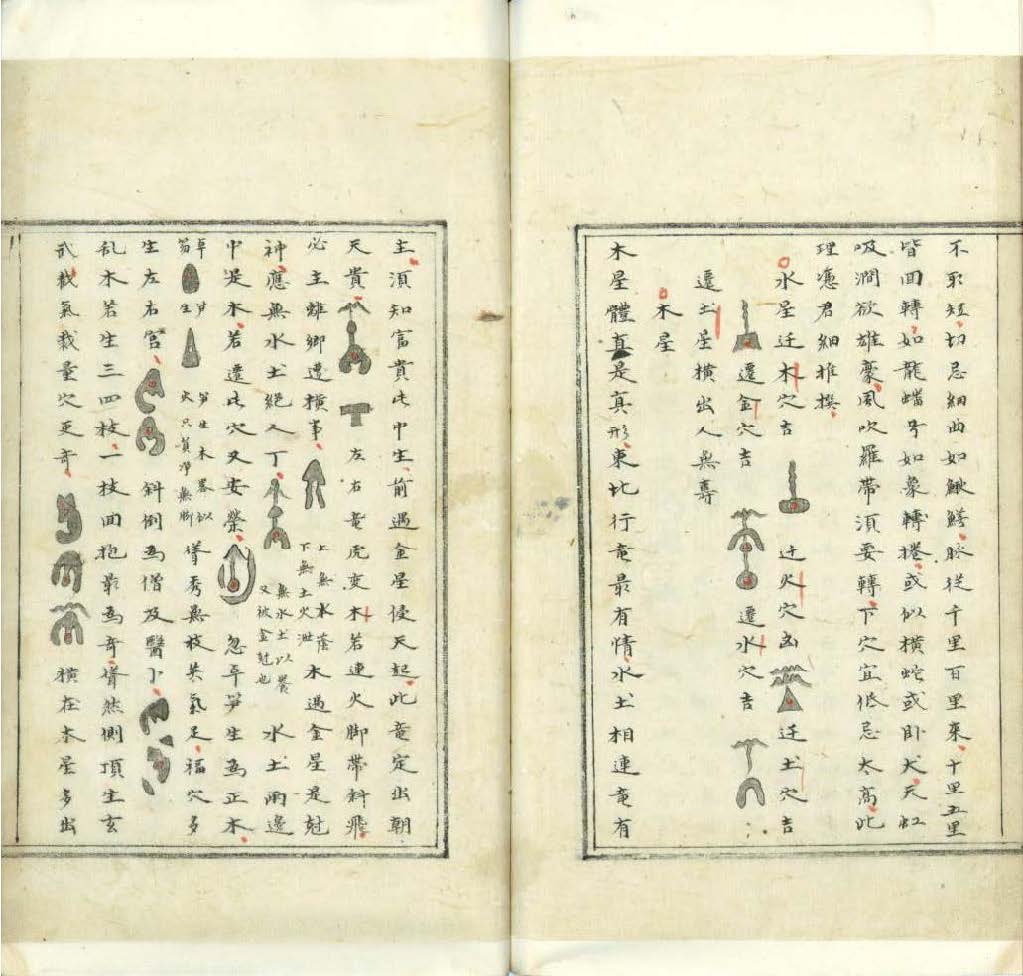 不取短切忌細曲如鰍鱔脉從千里百里來十里五里
皆回轉如龍蟠兮如象轉捲或似橫蛇或臥犬天虹
吸澗欲雄豪風吹羅帶須要轉下穴宜低忌太高此
理憑君細推
水星迁木穴吉 迁火穴凶 迁土穴吉
遷金穴吉 遷水穴吉
遷土星橫出人無壽
木星
木星體真是真形東北行竜最有情水土相連竜有
主須知富貴此中生前遇金星侵天起此竜定出朝
天貴 左右竜虎变木若連火脚帶斜飛
必主離鄉遭橫事 上無水蔭 下無土火泄 木遇金星是尅
神應無水土絕人丁 無水土以養 又被金尅也 水土兩邊
中是木若遷此穴又安榮 忽卓笋生為正木
卓笋 尖只負淨無脚 聳秀無枝英氣足福穴多
生左右宮 斜倒為僧及醫卜
乱木若生三四枝一枝回抱最為奇聳然側頂生玄
武截氣截量穴更奇 橫在木星多出